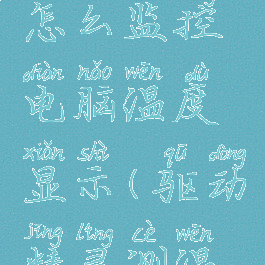 怎么监控
diàn nǎo wēn dù
电脑温度
xiǎn shì qū dòng
显示(驱动
jīng líng cè wēn
精灵测温